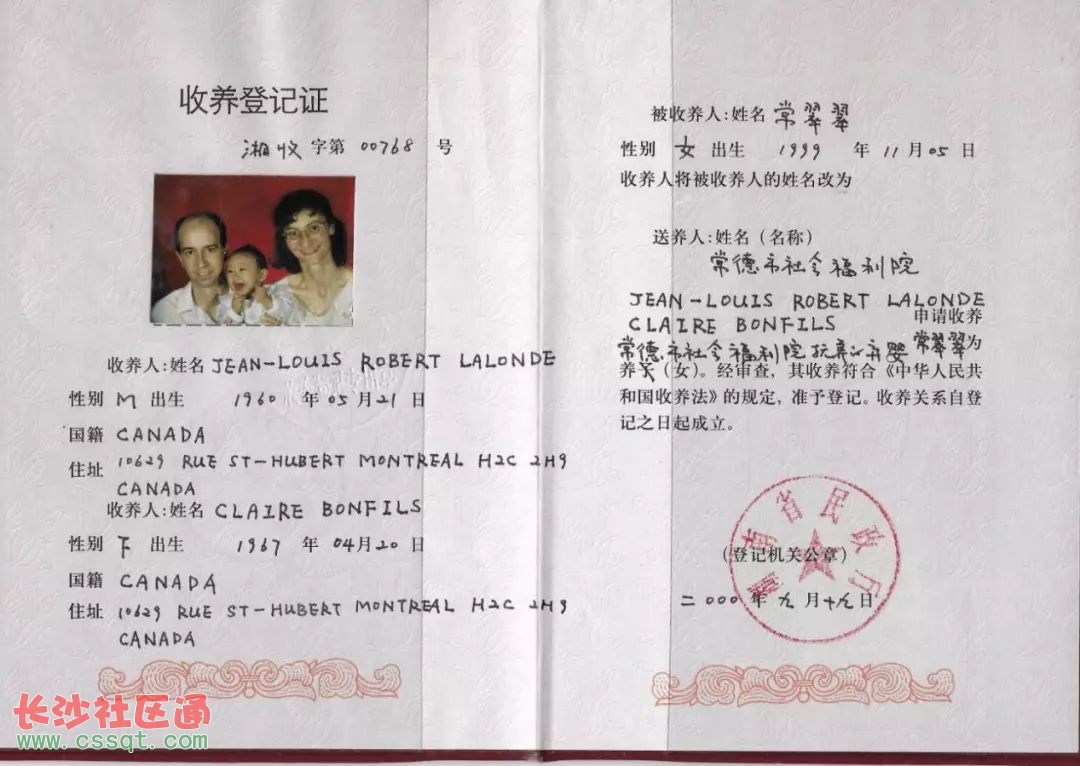 收养登记证
湘收字第 00768 号
收养人:姓名 JEAN-LOUIS ROBERT LALONDE
性别 M 出生 1960 年 05 月 21 日
国籍 CANADA
住址 10629 RUE ST-HUBERT MONTREAL H2C 2H9
CANADA
收养人:姓名 CLAIRE BONFILS
性别 F 出生 1967 年 04 月 20 日
国籍 CANADA
住址 10629 RUE ST-HUBERT MONTREAL H2C 2H9
CANADA
被收养人:姓名 常翠翠
性别 女 出生 1999 年 11 月 05 日
收养人将被收养人的姓名改为
送养人:姓名(名称)
常德市社会福利院
JEAN-LOUIS ROBERT LALONDE
CLAIRE BONFILS 申请收养
常德市社会福利院抚养的弃婴 常翠翠 为
养(女)。经审查,其收养符合《中华人民共
和国收养法》的规定,准予登记。收养关系自登
记之日起成立。
湖南省民政厅
(登记机关公章)
二000年 九月十九日
长沙社区通
www.cssqt.com